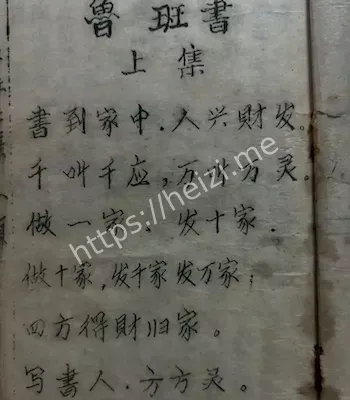 魯班書
上集
書到家中.人兴財发。
千叫千应,万叫万灵。
做一家,发十家.
做十家,发千家发万家;
四方得財归家。
写書人.方方灵。
https://heizi.me